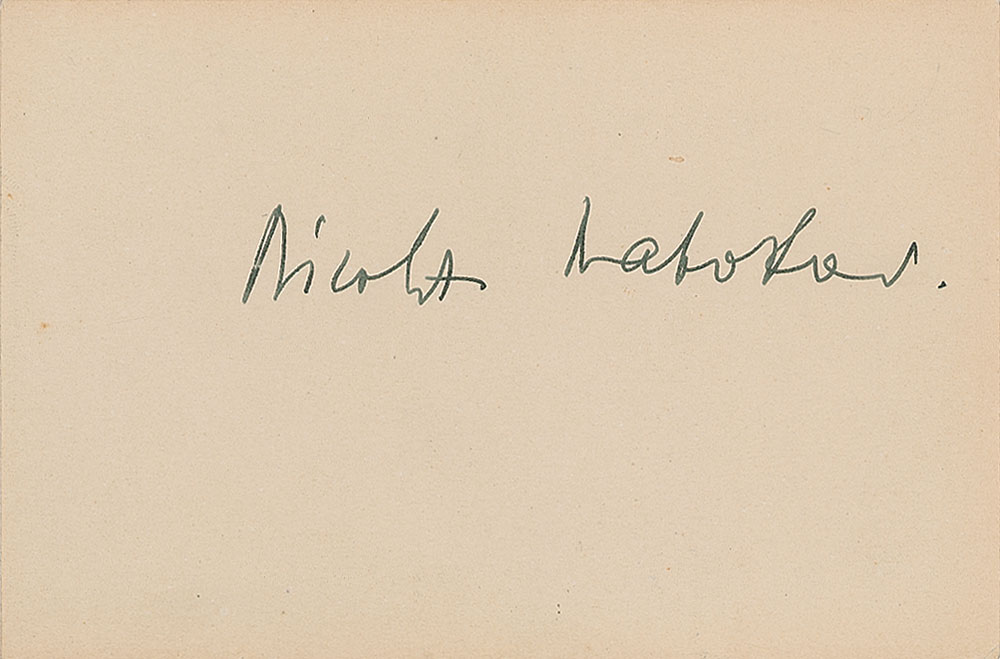 Nicolas Nabokov.